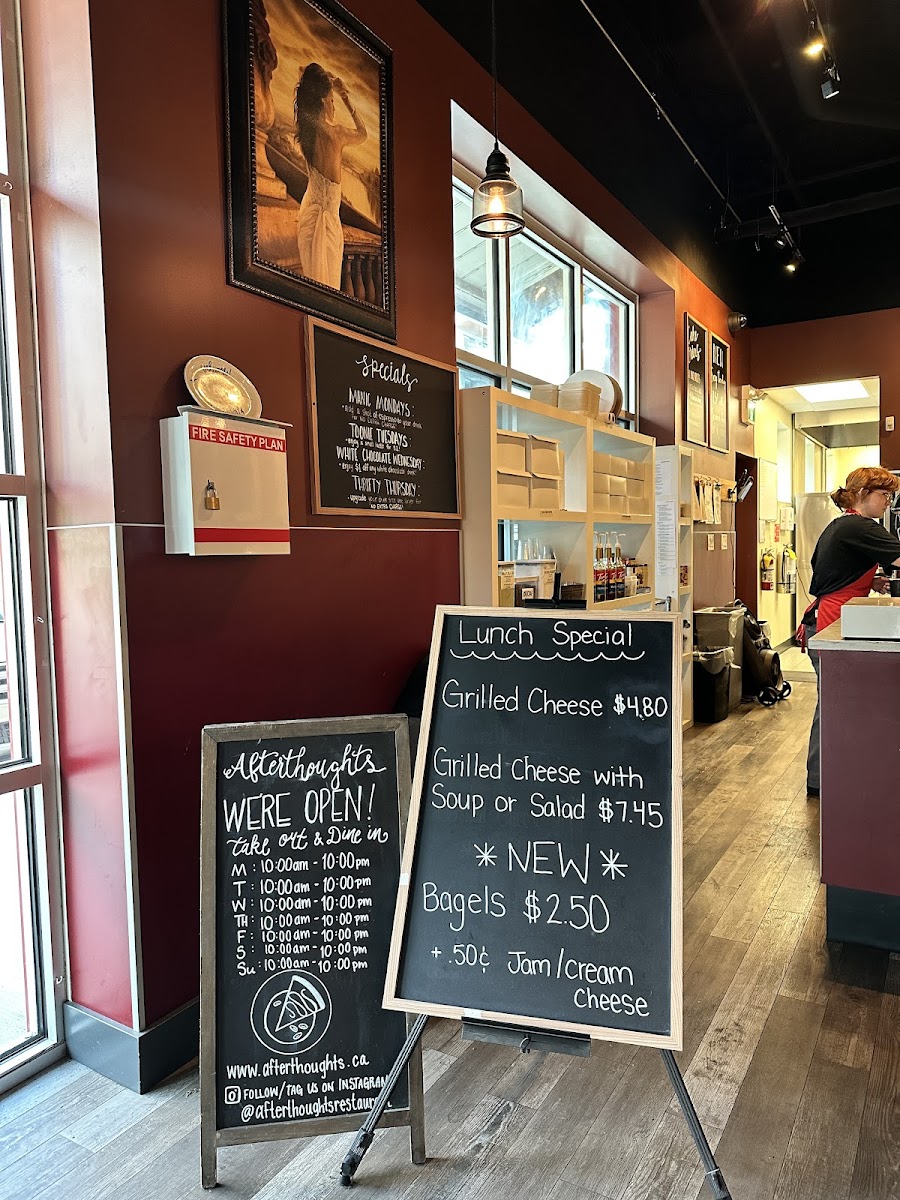 FIRE SAFETY PLAN
Specials
MANIC MONDAYS:
TOONIE TUESDAYS
WHITE CHOCOLATE WEDNESDAY:
THRIFTY THURSDAY:
NO EXTRA CHARGE!
Lunch Special
Grilled Cheese $4.80
Grilled Cheese with
Soup or Salad $7.45
* NEW *
Bagels $2.50
+ .50¢ Jam/cream
cheese
Afterthoughts
WERE OPEN!
take out & Dine in
M : 10:00am - 10:00pm
T : 10:00am - 10:00pm
W : 10:00am - 10:00pm
TH : 10:00am - 10:00pm
F : 10:00am - 10:00pm
S : 10:00am - 10:00pm
Su : 10:00am - 10:00pm
www.afterthoughts.ca
FOLLOW/TAG US ON INSTAGRAM
@afterthoughtsrestaurant